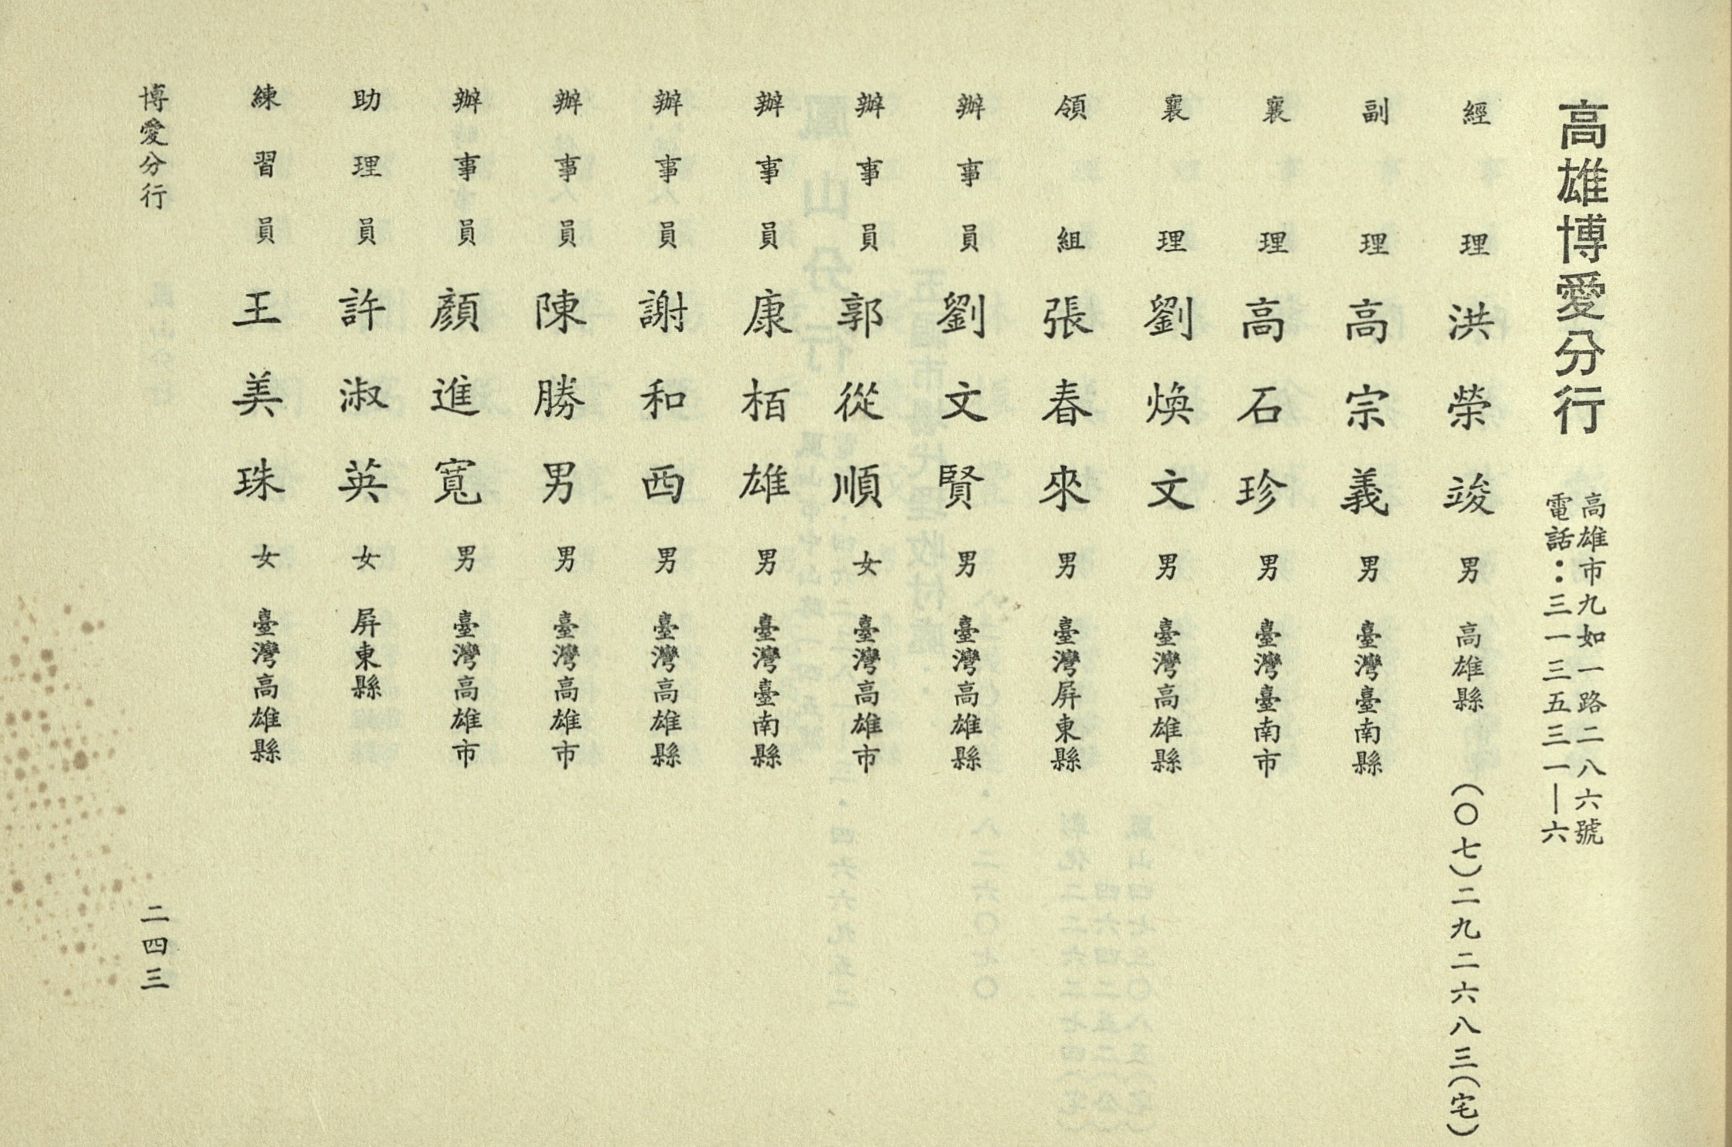 高雄博愛分行
高雄市九如一路二八六號
電話：三一三五三一—六
經理 洪榮竣 男 高雄縣 (〇七)二九二六八三(宅)
副理 高宗義 男 臺灣臺南縣
襄理 高石珍 男 臺灣臺南市
襄理 劉煥文 男 臺灣高雄縣
領組 張春來 男 臺灣屏東縣
辦事員 劉文賢 男 臺灣高雄縣
辦事員 郭從順 女 臺灣高雄市
辦事員 康栢雄 男 臺灣臺南縣
辦事員 謝和西 男 臺灣高雄縣
辦事員 陳勝男 男 臺灣高雄市
辦事員 顏進寬 男 臺灣高雄市
助理員 許淑英 女 屏東縣
練習員 王美珠 女 臺灣高雄縣
博愛分行
二四三